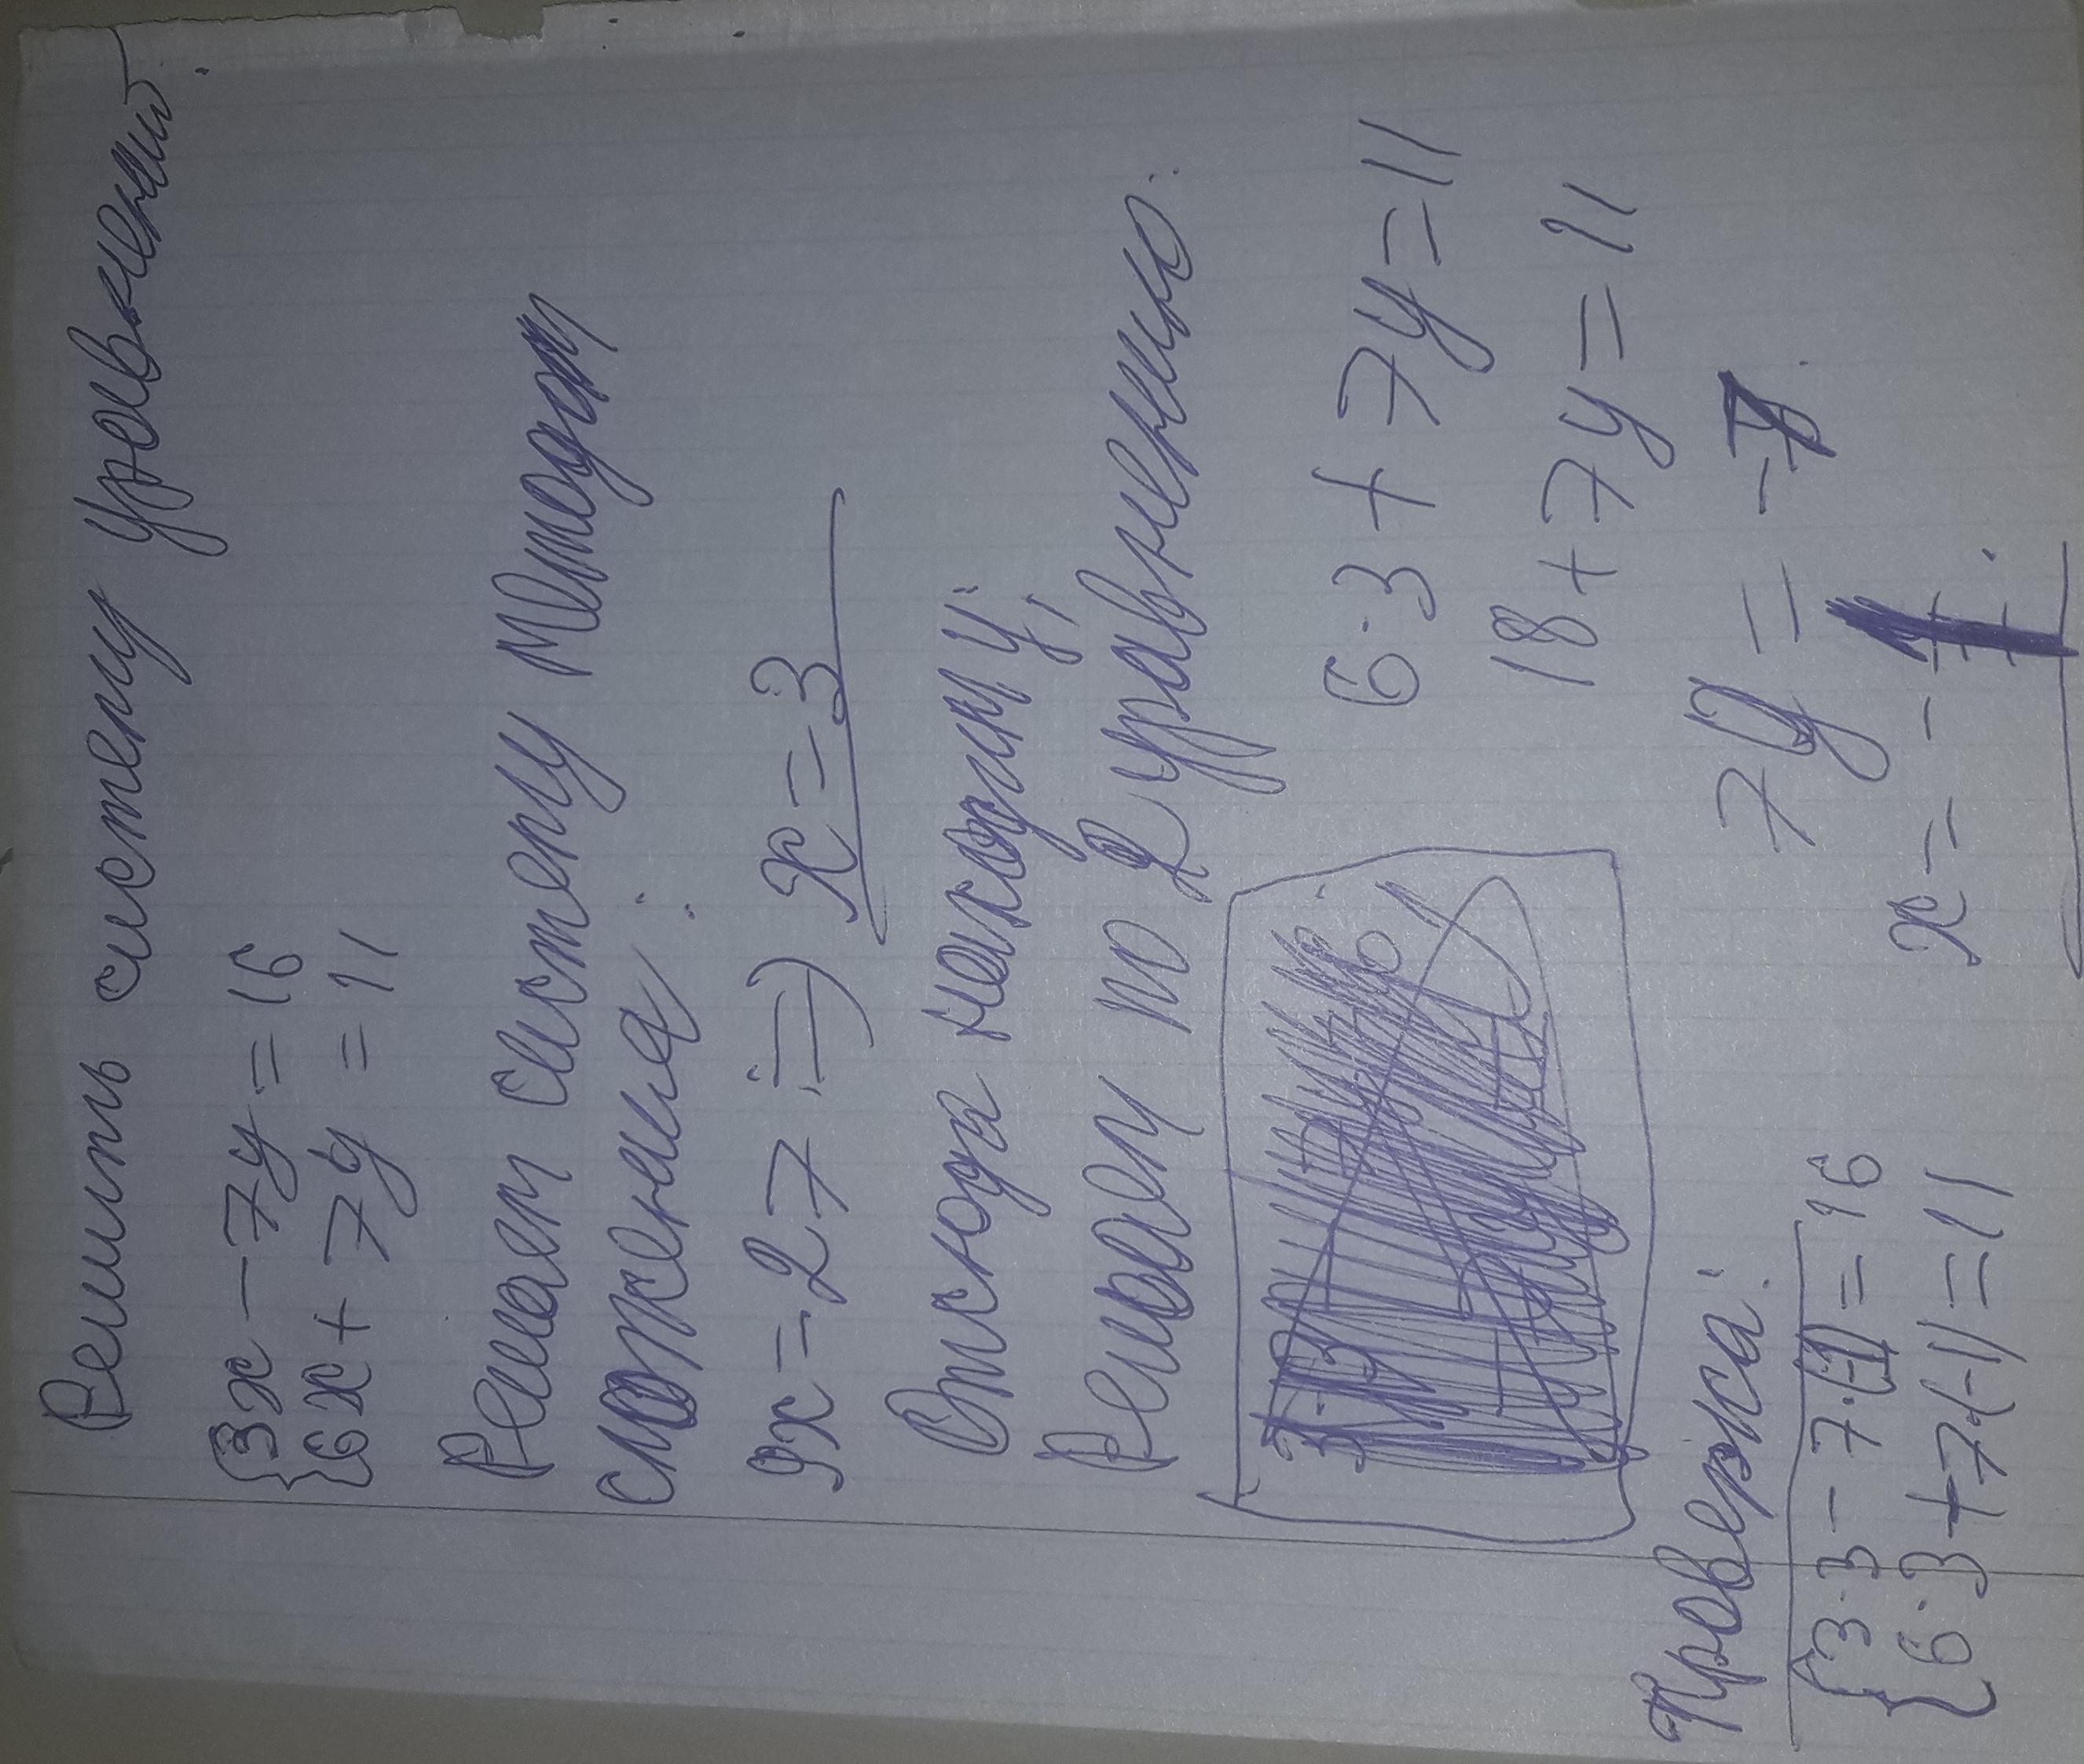 Решить систему уравнений.
{3x - 7y = 16
{6x + 7y = 11
Решаем систему методом
сложения:
9x = 27 => x = 3
Отсюда находим y;
Решаем по 2 уравнению:
6·3 + 7y = 11
18 + 7y = 11
7y = -7
x = -1.
Проверка:
{3·3 - 7·(-1) = 16
{6·3 + 7·(-1) = 11